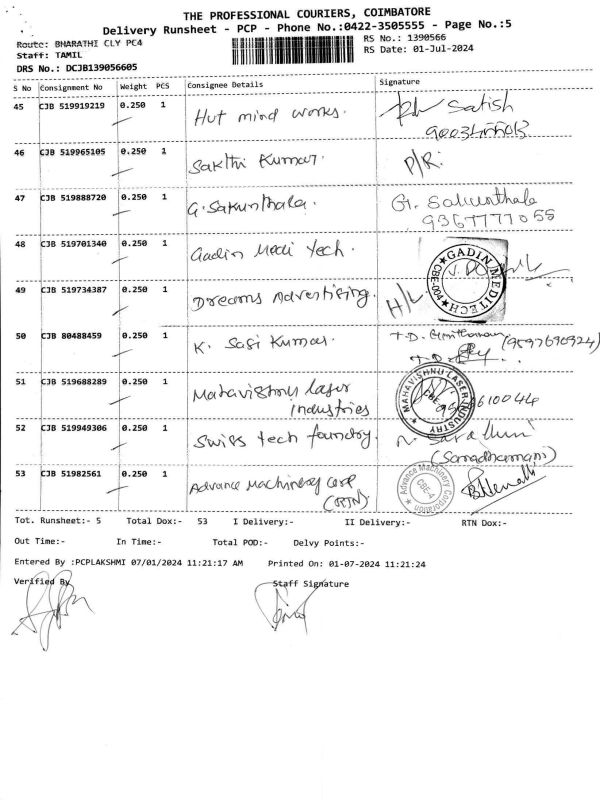 THE PROFESSIONAL COURIERS, COIMBATORE
Delivery Runsheet - PCP - Phone No.:0422-3505555 - Page No.:5
Route: BHARATHI CLY PC4
RS No.: 1390566
Staff: TAMIL
RS Date: 01-Jul-2024
DRS No.: DCJB139056605
S No Consignment No Weight PCS Consignee Details Signature
45 CJB 519919219 0.250 1 Hut mind works. Satish
46 CJB 519965105 0.250 1 Sakthi Kumar. P/R.
47 CJB 519888720 0.250 1 G. Sakunthala. G. Sakunthala
9367777055
48 CJB 519701340 0.250 1 Gadin Medi Tech. GADIN MEDITECH
CBE-004
49 CJB 519734387 0.250 1 Dreams Advertising. H/L
50 CJB 80488459 0.250 1 K. Sasi Kumar. T.D.
(9597690924)
51 CJB 519688289 0.250 1 Mahavishnu laser
industries
MAHAVISHNU LASER INDUSTRY
52 CJB 519949306 0.250 1 Swiss tech foundry.
53 CJB 51982561 0.250 1 Advance Machinery Corp
(RTN)
Advance Machinery Corporation
CBE-4
Tot. Runsheet:- 5 Total Dox:- 53 I Delivery:- II Delivery:- RTN Dox:-
Out Time:- In Time:- Total POD:- Delvy Points:-
Entered By :PCPLAKSHMI 07/01/2024 11:21:17 AM Printed On: 01-07-2024 11:21:24
Verified By Staff Signature